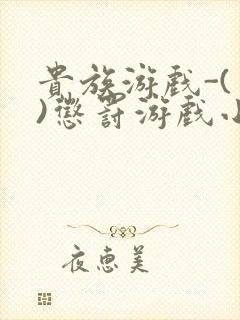 貴族游戲-(
)懲罰游戲小
夜惠美